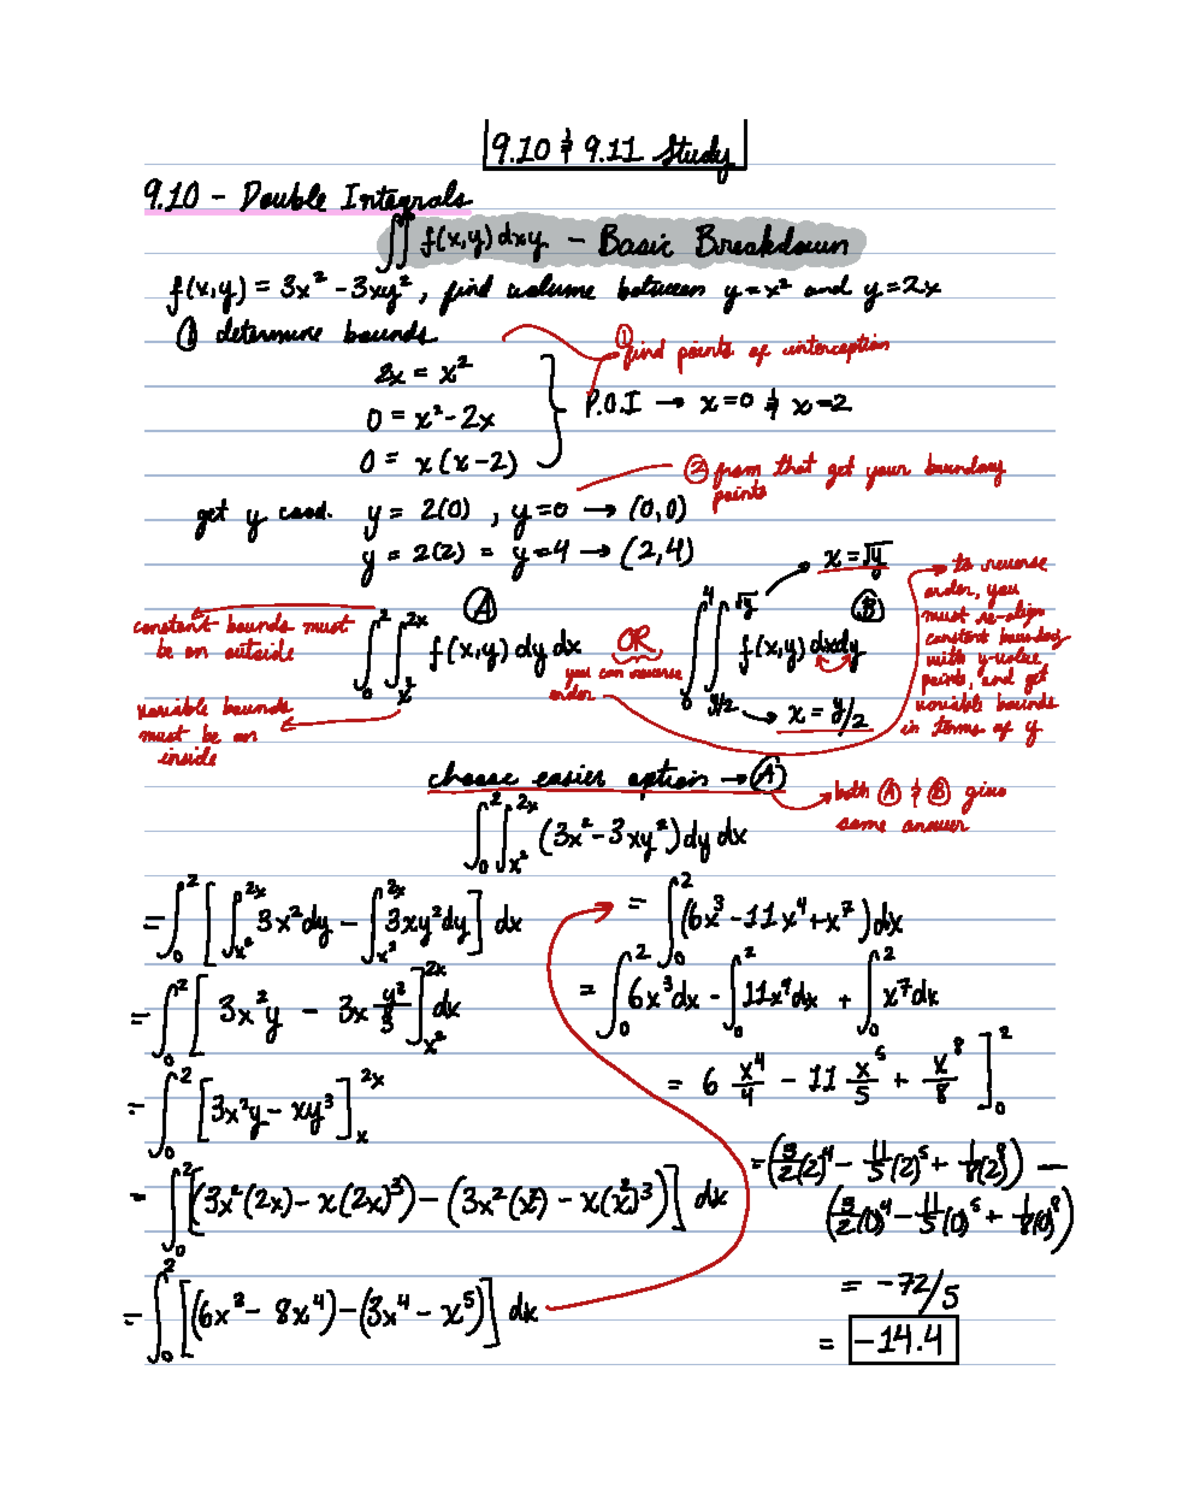 9.10 & 9.11 Study
9.10 - Double Integrals
∬ f(x,y) dxy - Basic Breakdown
f(x,y) = 3x² - 3xy², find volume between y=x² and y=2x
① determine bounds
① find points of interception
2x = x²
0 = x² - 2x
0 = x(x-2)
P.O.I → x=0 & x=2
② from that get your boundary points
get y coord. y = 2(0), y=0 → (0,0)
y = 2(2) = y=4 → (2,4)
constant bounds must
be on outside
variable bounds
must be on
inside
Ⓐ
∫₀² ∫_{x²}^{2x} f(x,y) dy dx
OR
you can reverse
order
Ⓑ
x = √y
∫₀⁴ ∫_{y/2}^{√y} f(x,y) dxdy
→ x = y/2
→ to reverse
order, you
must re-align
constant boundary
with y-value
points, and get
variable bounds
in terms of y
choose easier option → Ⓐ
both Ⓐ & Ⓑ give
same answer
∫₀² ∫_{x²}^{2x} (3x² - 3xy²) dy dx
= ∫₀² [ ∫_{x²}^{2x} 3x² dy - ∫_{x²}^{2x} 3xy² dy ] dx
= ∫₀² [ 3x²y - 3x y²/3 ]_{x²}^{2x} dx
= ∫₀² [ 3x²y - xy³ ]_x^{2x}
= ∫₀² [(3x²(2x) - x(2x)³) - (3x²(x²) - x(x²)³)] dx
= ∫₀² [(6x³ - 8x⁴) - (3x⁴ - x⁵)] dx
= ∫₀² (6x³ - 11x⁴ + x⁷) dx
= ∫₀² 6x³ dx - ∫₀² 11x⁴ dx + ∫₀² x⁷ dx
= 6 x⁴/4 - 11 x⁵/5 + x⁸/8 ]₀²
= (3/2(2)⁴ - 11/5(2)⁵ + 1/8(2)⁸) -
(3/2(0)⁴ - 11/5(0)⁵ + 1/8(0)⁸)
= -72/5
= -14.4